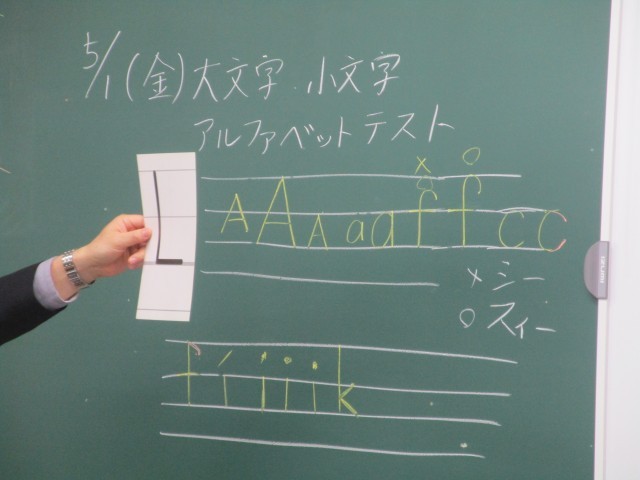 5/1(金)大文字・小文字
アルファベットテスト
× ○
A A A a a f f c c
L
×シー
○スィー
f i i i i k